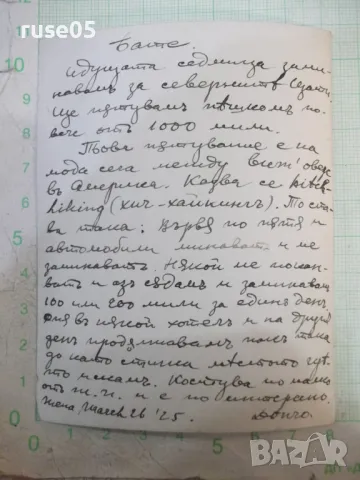 ruse05
Бате.
Идущата седмица зами-
навамъ за севернитѣ щати.
Ще пѫтувамъ пѣшкомъ по-
вече отъ 1000 мили.
Това пѫтувание е на
мода сега между
въ Америка. Казва се hitch
hiking (хич-хайкингъ). То ста-
ва така: Вървя по пѫтя и
автомобили минаватъ и ме
заминаватъ. Някой ме покан-
ватъ и азъ сѣдамъ и заминавамъ
100 или 200 мили за единъ день
спя въ някой хотелъ и на другия
день продължавамъ пакъ така
до като стигна мѣстото гдѣ-
то искамъ. Костува по малко
отъ ж.п. и е по интересно.
March 26 '25. Дончо.
bazar.bg